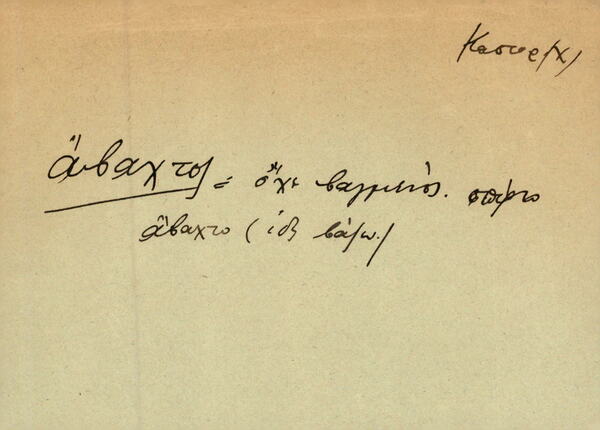 Καστορ(χ)
ἄβαχτος = ὄχι βαμμένος. σπίρτο
ἄβαχτο (ἰδὲ βάζω.)